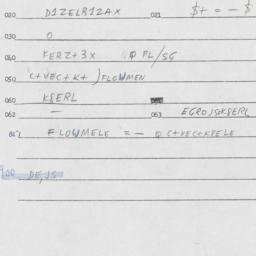 020 D1ZEL81ZAX 021 $+ = - $
030 O
040 FERZ+3X φ FL/SG
050 (+VEC+K+)FLOWMEN
060 K8ERL
062 — 063 EGROJS+K8ERL
065 FLOWMELE = - φ C+VEC+K8ELE
100 DE,JS